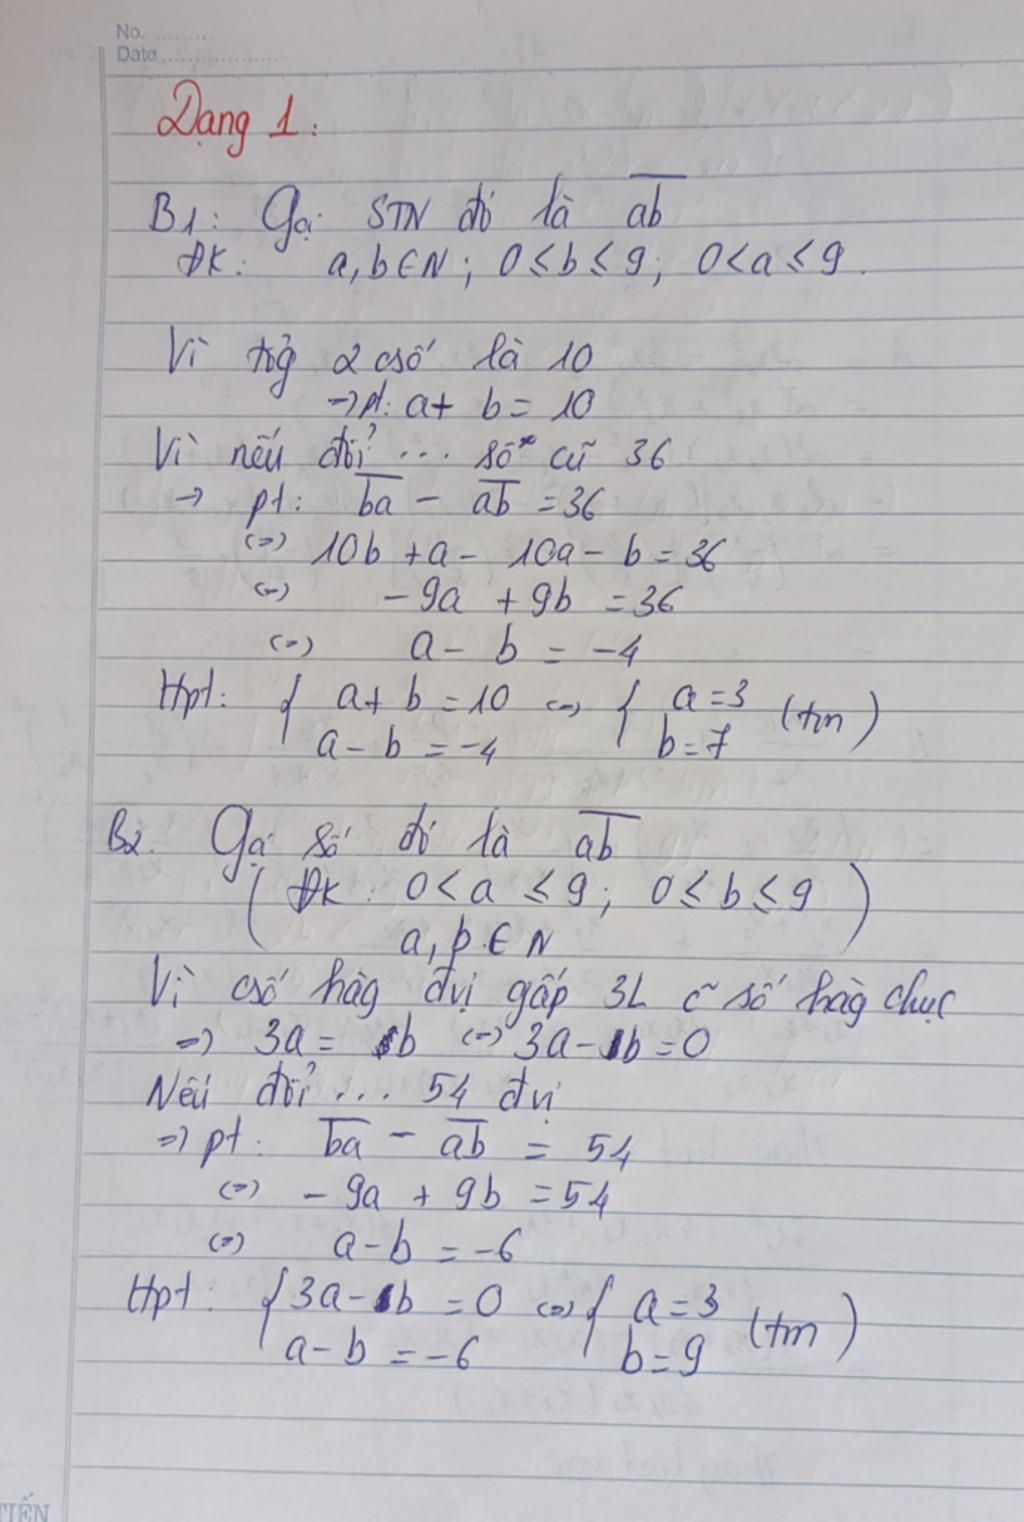 No. .........
Date ..................
Dạng 1:
B1: Gọi STN đó là \overline{ab}
ĐK: a, b ∈ N ; 0 ≤ b ≤ 9 ; 0 < a ≤ 9.
Vì tổg 2 csố là 10
=> pt: a + b = 10
Vì nếu đổi ... số cũ 36
-> pt: \overline{ba} - \overline{ab} = 36
(=) 10b + a - 10a - b = 36
(=) - 9a + 9b = 36
(=) a - b = -4
Hpt: { a + b = 10 (=) { a = 3 (tm)
a - b = -4 b = 7
B2. Gọi số đó là \overline{ab}
( ĐK: 0 < a ≤ 9 ; 0 ≤ b ≤ 9 )
a, b ∈ N
Vì csố hàg đvị gấp 3L c~ số hàg chục
=> 3a = b (=) 3a - b = 0
Nếu đổi ... 54 đvị
=> pt: \overline{ba} - \overline{ab} = 54
(=) - 9a + 9b = 54
(=) a - b = -6
Hpt: { 3a - b = 0 (=) { a = 3 (tm)
a - b = -6 b = 9
TIẾN